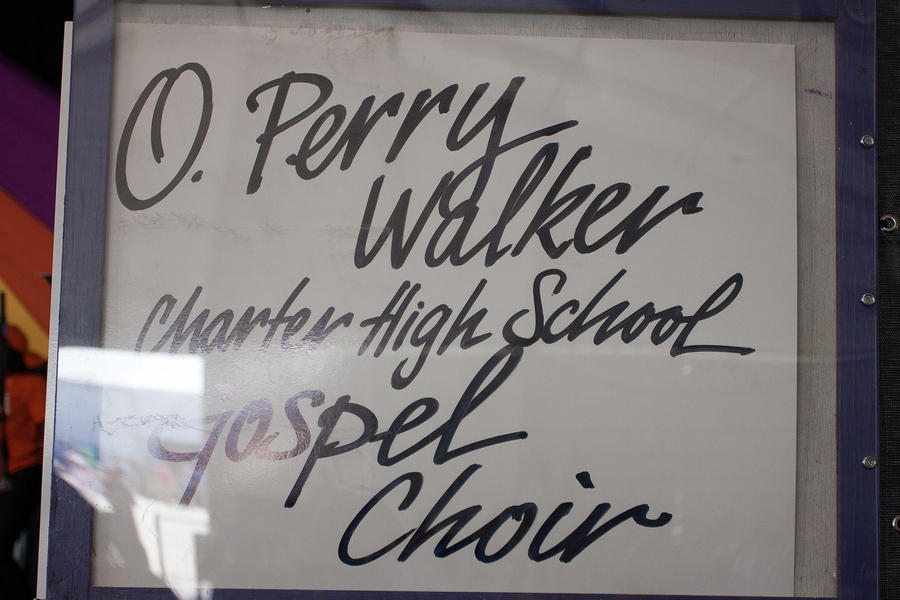 O. Perry
Walker
Charter High School
Gospel
Choir